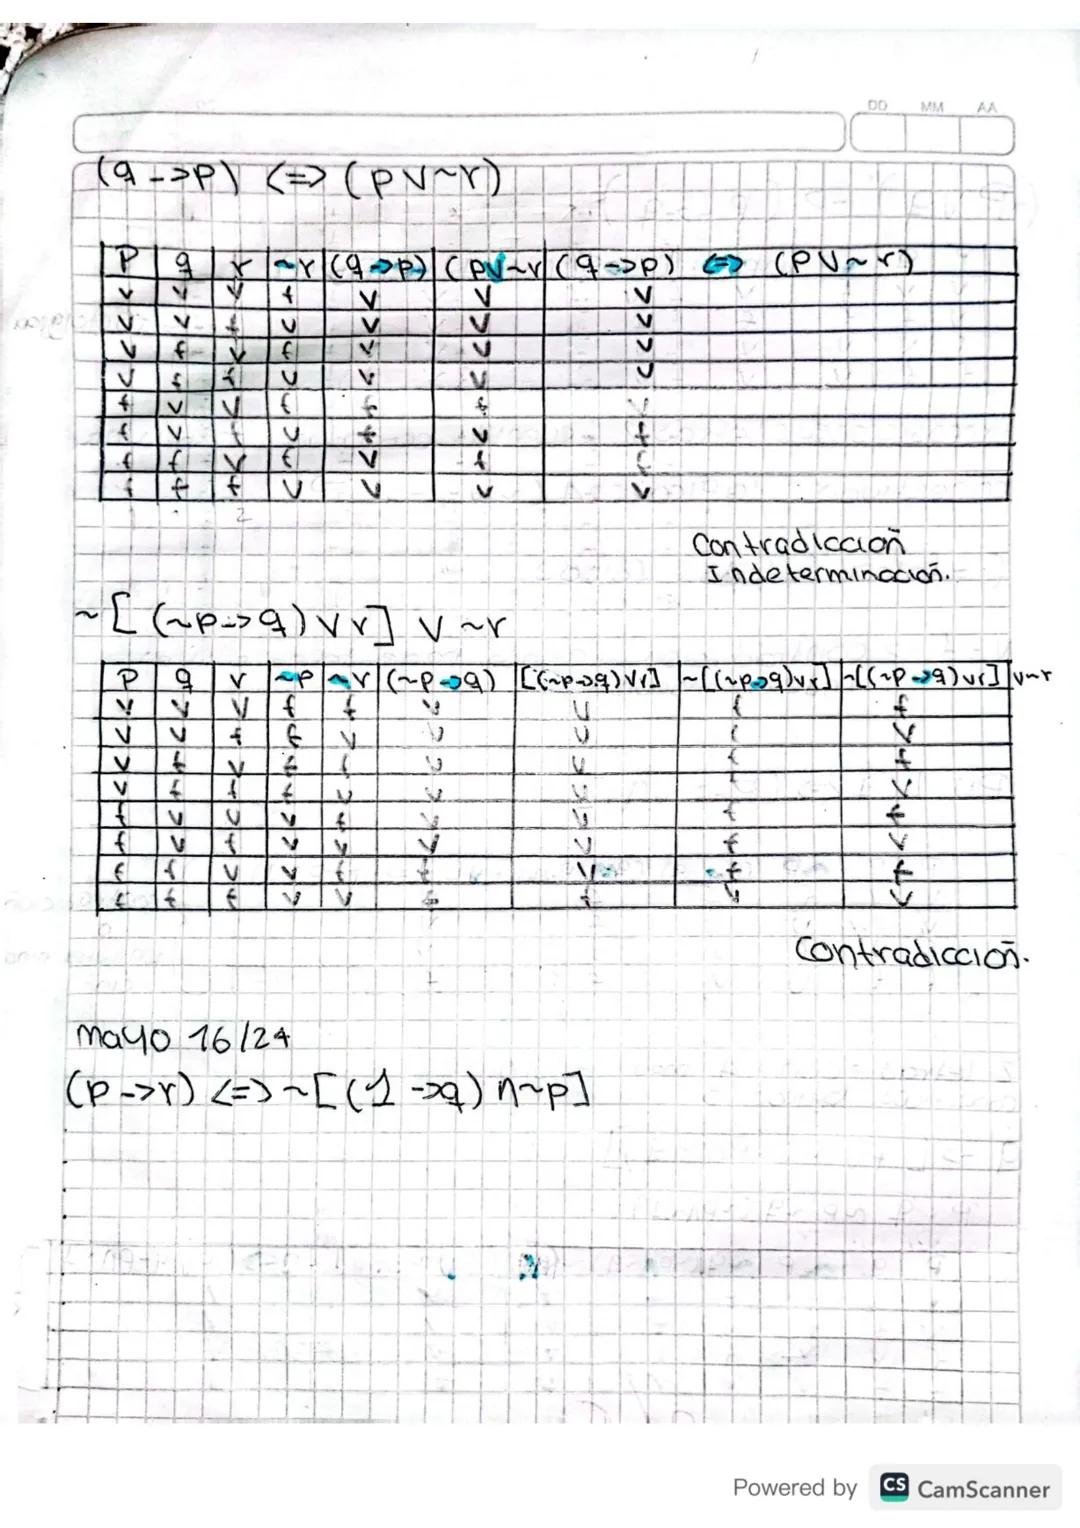 DD MM AA
(q -> p) <=> (p V ~r)
P q r ~r (q -> p) (p V ~r (q -> p) <=> (p V ~ r)
v v v f v v v
v v f v v v v
v f v f v v v
v f f v v v v
f v v f f f v
f v f v f v f
f f v f v f f
f f f v v v v
Contradiccioñ
Indeterminacioñ.
~ [ (~p -> q) V r ] V ~r
P q r ~p ~r (~p -> q) [(~p -> q) V r] ~[(~p -> q) v r] ~[(~p -> q) v r] v ~ r
v v v f f v v f f
v v f f v v v f v
v f v f f v v f f
v f f f v v v f v
f v v v f v v f f
f v f v v v v f v
f f v v f f v f f
f f f v v f f v v
Contradiccioñ.
mayo 16/24
(p -> r) <=> ~ [ (1 -> q) n ~p ]
Powered by CS CamScanner